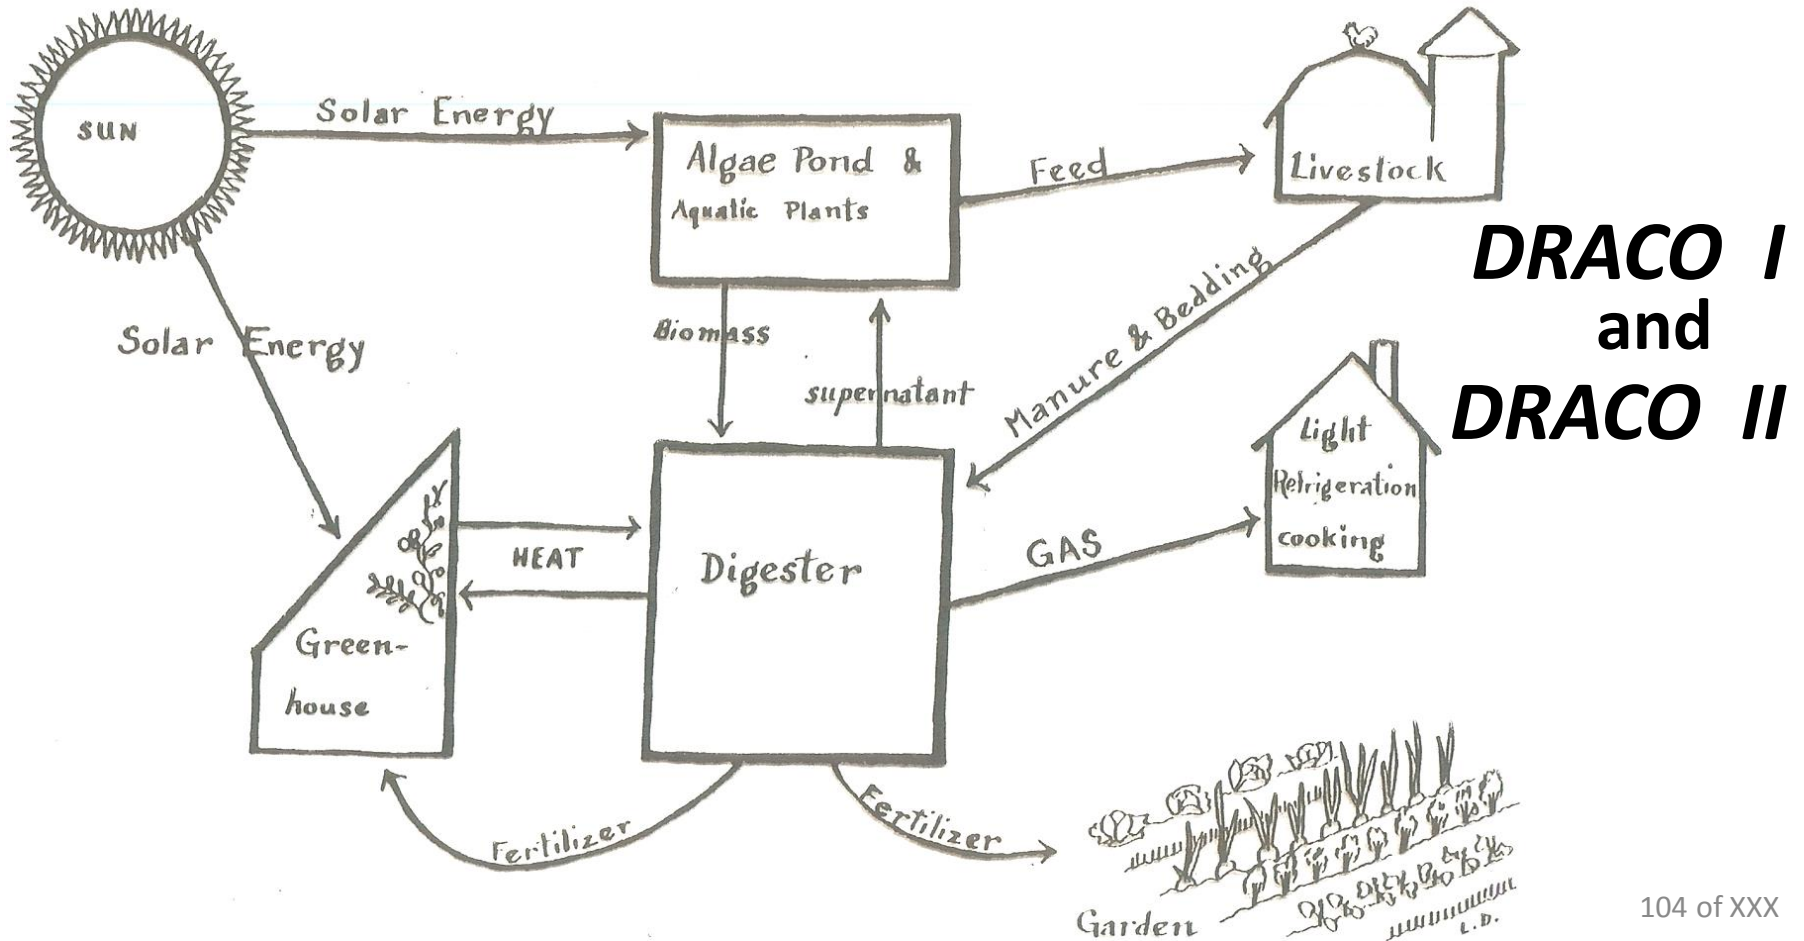 SUN
Solar Energy
Algae Pond &
Aquatic Plants
Feed
Livestock
DRACO I
and
DRACO II
Solar Energy
Biomass
supernatant
Manure & Bedding
Light
Refrigeration
cooking
HEAT
Digester
GAS
Green-
house
Fertilizer
Fertilizer
Garden
L.D.
104 of XXX